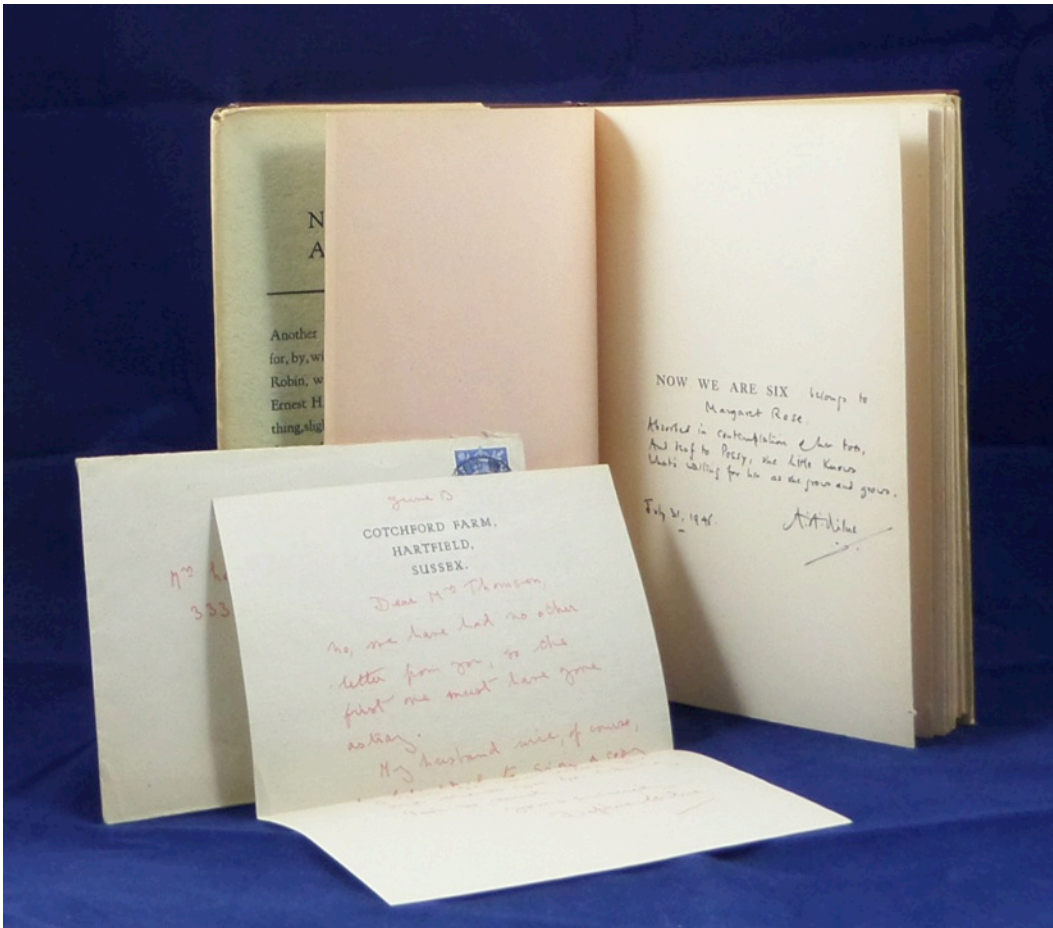 N
A
Another
for, by, wi
Robin, w
Ernest H
thing, slig
NOW WE ARE SIX belongs to
Margaret Rose.
Absorbed in contemplation of her toes,
And deaf to Possy, she little knows
What's waiting for her as she grows and grows.
July 31, 194
A.A. Milne
June 13
COTCHFORD FARM,
HARTFIELD,
SUSSEX.
Dear Mrs Thomson,
No, we have had no other
letter from you, so the
first one must have gone
astray.
My husband will, of course,
to sign a copy
Mrs
333